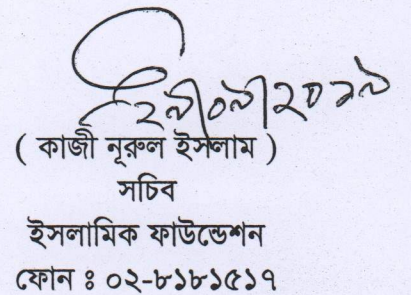 ( কাজী নূরুল ইসলাম )
সচিব
ইসলামিক ফাউন্ডেশন
ফোন ঃ ০২-৮১৮১৫১৭